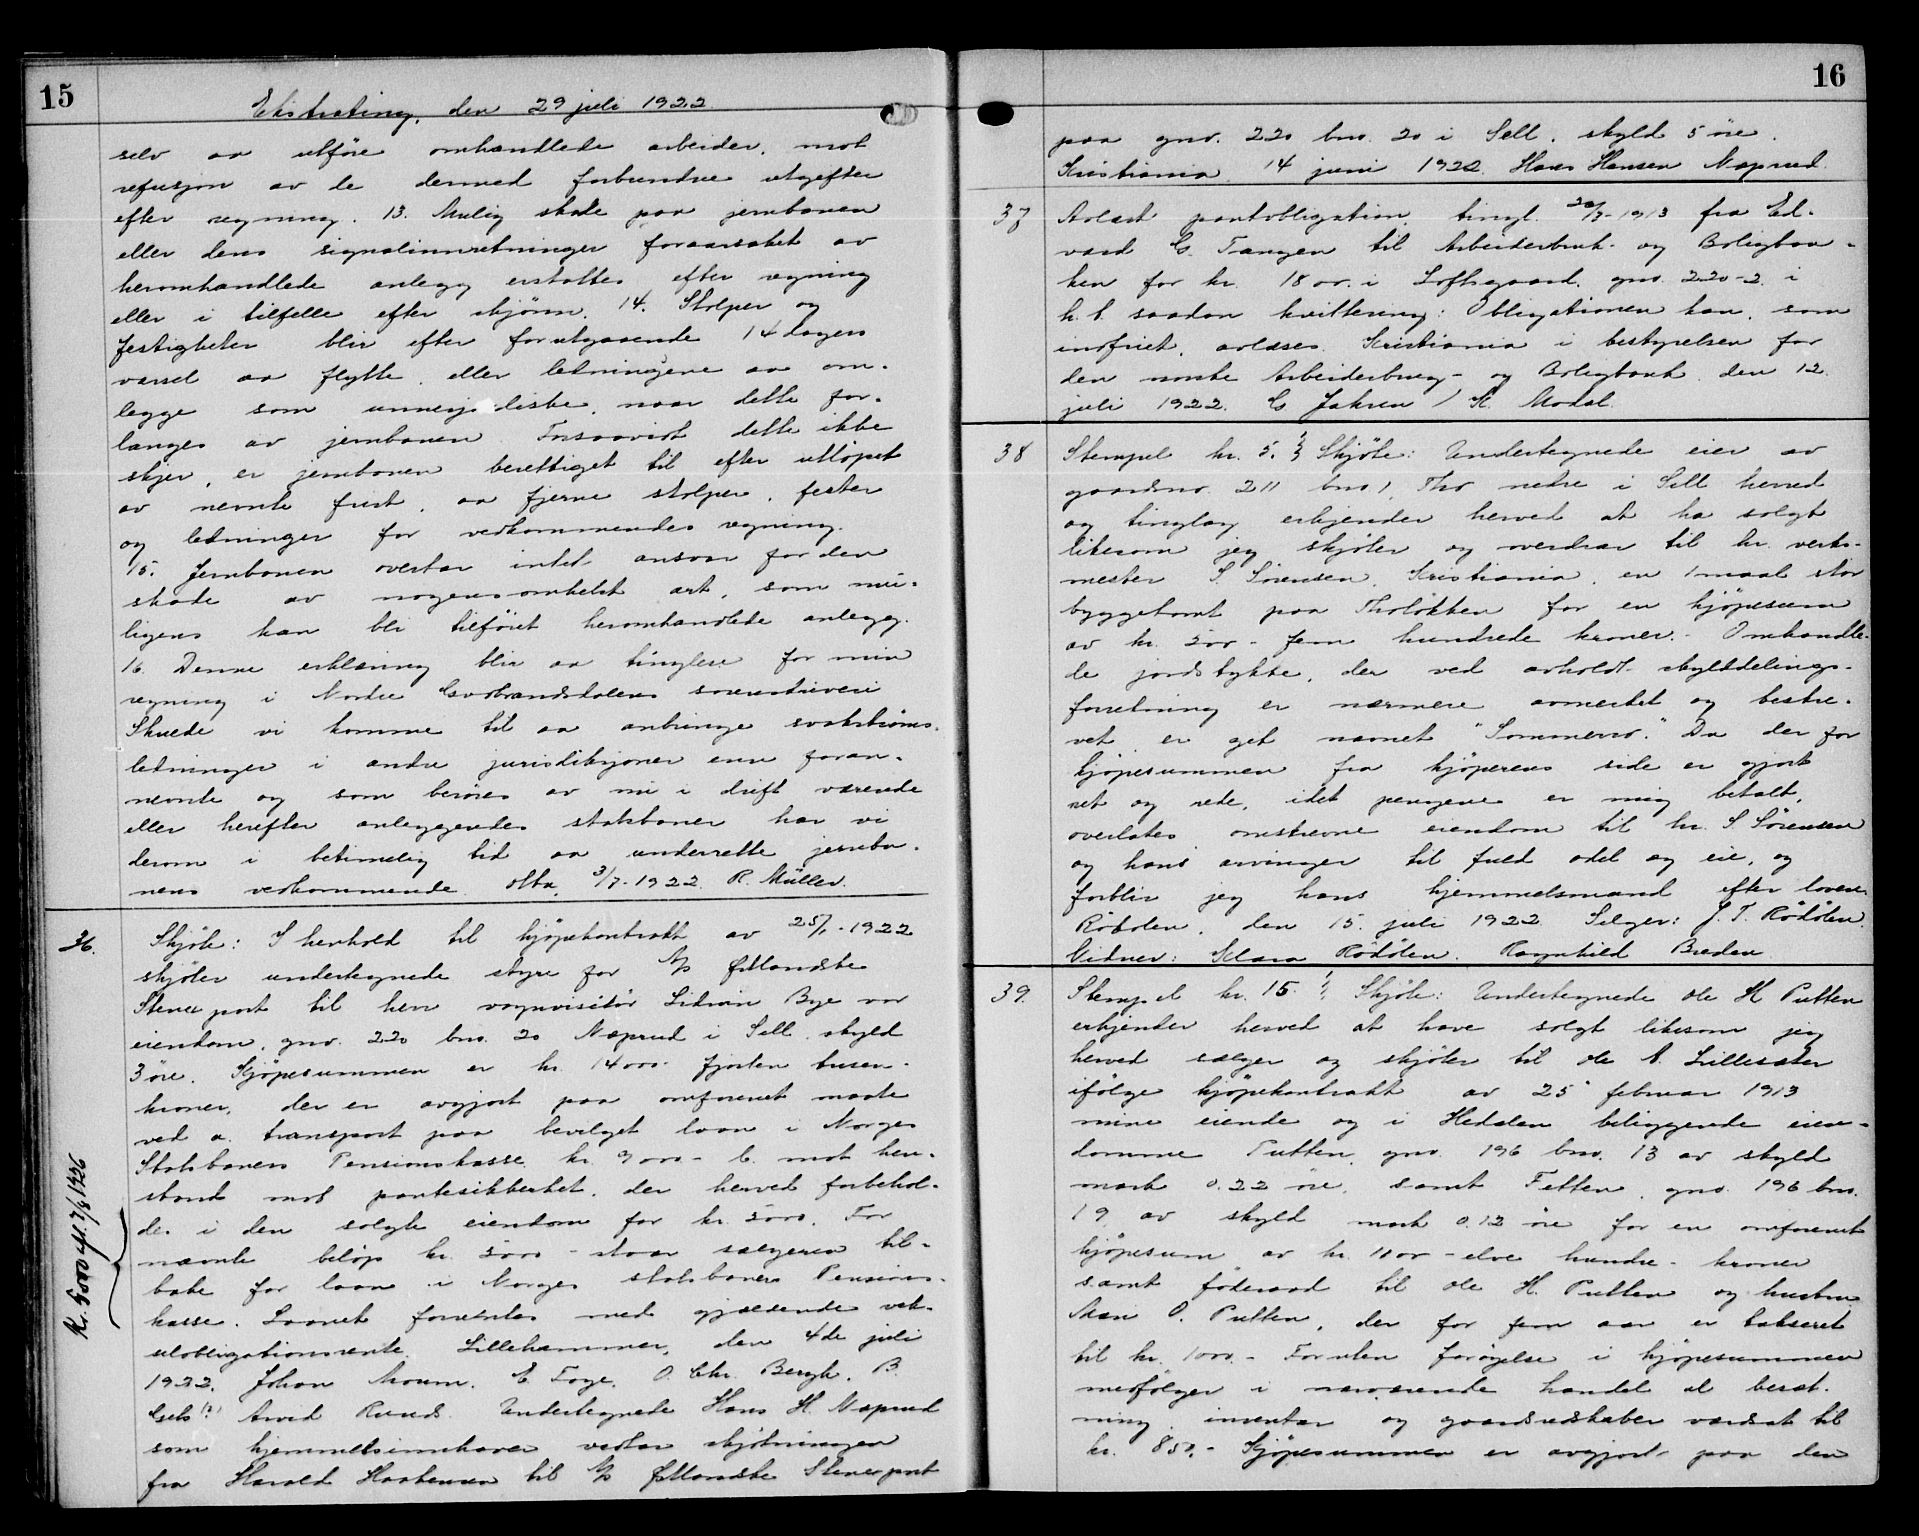 15
Ekstrating, den 29 juli 1922
selv aa utføre omhandlede arbeider, mot
refusjon av de dermed forbundne utgifter
efter regning. 13. Mulig skade paa jernbanen
eller dens signalinnretninger foraarsaket av
heromhandlede anlegg erstattes efter regning
eller i tilfelle efter skjønn. 14. Stolper og
festigheter blir efter forutgaaende 14 dagers
varsel aa flytte, eller ledningene aa om-
legge som underjordiske, naar dette for-
langes av jernbanen. Forsaavidt dette ikke
skjer, er jernbanen berettiget til efter utløpet
av nevnte frist, aa fjerne stolper, fester
og ledninger for vedkommendes regning.
15. Jernbanen overtar intet ansvar for den
skade av nogensomhelst art, som mu-
ligens kan bli tilføiet heromhandlede anlegg.
16. Denne erklæring blir aa tinglese for min
regning i Nordre Gudbrandsdalens sorenskriveri
Skulde vi komme til aa anbringe svakstrøms-
ledninger i andre jurisdiksjoner enn foran-
nevnte og som berøres av nu i drift værende
eller herefter anleggendes statsbaner har vi
derom i betimelig tid aa underrette jernba-
nens vedkommende. Otta, 3/7-1922 R. Müller.
36.
Skjøte: I henhold til kjøpekontrakt av 25/1-1922
skjøter undertegnede styre for A/S Østlandske
Stenexport til herr vognvisitør Bye vor
eiendom, gno. 220 bno. 20 Næprud i Sell. skyld
3 øre. Kjøpesummen er kr. 14000- fjorten tusen-
kroner, der er avgjort paa omforenet maate
ved a. transport paa bevilget laan i Norges
Statsbaners Pensionskasse kr. 9000- b. mot hen-
stand mot pantesikkerhet, der herved forbehol-
des i den solgte eiendom for kr. 5000. For
nævnte beløp kr. 5000- staar sælgeren til-
bake for laan i Norges statsbaners Pensions-
kasse. Laanet forrentes med gjældende vek-
selobligationsrente. Lillehammer, den 4de juli
1922. Johan Moum. E. Foge. O. Chr. Bergh. B.
(?) Arvid Ruud. Undertegnede Hans H. Næprud
som hjemmelsinnhaver vedtar skjøtningen
fra Harald Haakensen til A/S Østlandske Stenexport
Kr. 5000 avl. 7/8 1926
16
paa gno. 220 bno. 20 i Sell. skyld 5 øre.
Kristiania 14 juni 1922. Hans Hansen Næprud
37
Avlæst pantobligation, tingl. 20/7-1913 fra Ed-
vard G. Tangen til Arbeiderbruk- og Boligban-
ken for kr. 1800. i Loftsgaard, gno. 220-2. i
h.t. saadan kvittering: Obligationen kan, som
innfriet, avlæses. Kristiania i bestyrelsen for
den norske Arbeiderbruk- og Boligbank, den 12.
juli 1922. G Jahren / K. Modal.
38
Stempel kr. 5. Skjøte: Undertegnede eier av
gaardsno. 211 bno 1, Tho nedre i Sell herred
og tinglag erkjender herved at ha solgt
likesom jeg skjøter og overdrar til hr. verks-
mester S. Sørensen, Kristiania, en 1 maal stor
byggetomt paa Tholøkken for en kjøpesum
av kr. 500- fem hundrede kroner.- Omhandle-
de jordstykke, der ved avholdt skylddelings-
forretning er nærmere avmerket og beskre-
vet er git navnet "Sommerro". Da der for
kjøpesummen fra kjøperens side er gjort
ret og rede, idet pengene er mig betalt,
overlates omskrevne eiendom til hr. S. Sørensen
og hans arvinger til fuld odel og eie, og
forblir jeg hans hjemmelsmand efter loven.
Rødølen, den 15. juli 1922 Selger: J. T. Rødølen.
Vidner: Klara Rødølen. Ragnhild Breden
39.
Stempel kr. 15. Skjøte: Undertegnede Ole H Putten
erkjender herved at have solgt likesom jeg
herved sælger og skjøter til Ole A. Lillesæter
ifølge kjøpekontrakt av 25 februar 1913
mine eiende og i Heddalen beliggende eien-
domme Putten, gno. 196 bno. 13 av skyld
mark 0.22 øre, samt Fetten, gno. 196 bno.
19 av skyld mark 0.12 øre for en omforenet
kjøpesum av kr. 1100 - elve hundre - kroner
samt føderaad til Ole H. Putten og hustru
Mari O. Putten, der for fem aar er takseret
til kr. 1000.- Foruten forøgelse i kjøpesummen
medfølger i nærværende handel al besæt-
ning, inventar og gaardsredskaber værdsat til
kr. 850,- Kjøpesummen er avgjort paa den